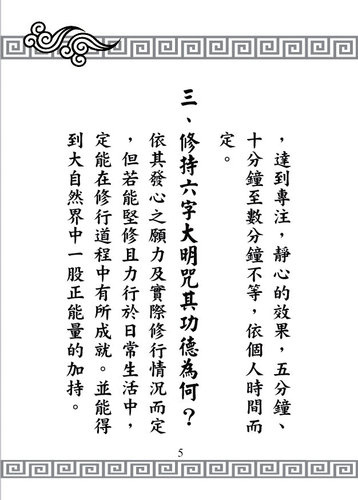 ，達到專注，靜心的效果，五分鐘、
十分鐘至數分鐘不等，依個人時間而
定。
三、修持六字大明咒其功德為何？
依其發心之願力及實際修行情況而定
，但若能堅修且力行於日常生活中，
定能在修行道程中有所成就。並能得
到大自然界中一股正能量的加持。
5